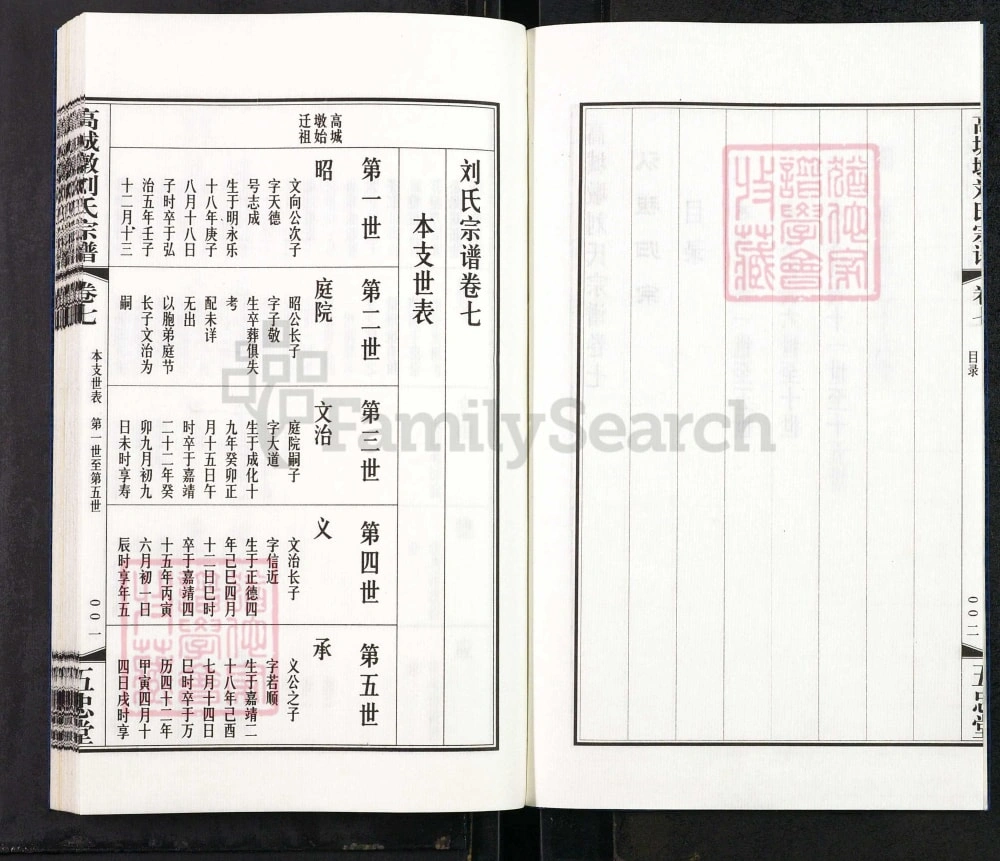 高城墩刘氏宗谱
卷七
目录
〇〇二
五忠堂
刘氏宗谱卷七
本支世表
高城
墩始
迁祖
第一世
昭
文向公次子
字天德
号志成
生于明永乐
十八年庚子
八月十八日
子时卒于弘
治五年壬子
十二月十三
第二世
庭院
昭公长子
字子敬
生卒葬俱失
考
配未详
无出
以胞弟庭节
长子文治为
嗣
第三世
文治
庭院嗣子
字大道
生于成化十
九年癸卯正
月十五日午
时卒于嘉靖
二十二年癸
卯九月初九
日未时享寿
第四世
义
文治长子
字信近
生于正德四
年己巳四月
十二日巳时
卒于嘉靖四
十五年丙寅
六月初一日
辰时享年五
第五世
承
义公之子
字若顺
生于嘉靖二
十八年己酉
七月十四日
巳时卒于万
历四十二年
甲寅四月十
四日戌时享
高城墩刘氏宗谱
卷七
本支世表 第一世至第五世
〇〇一
五忠堂
FamilySearch